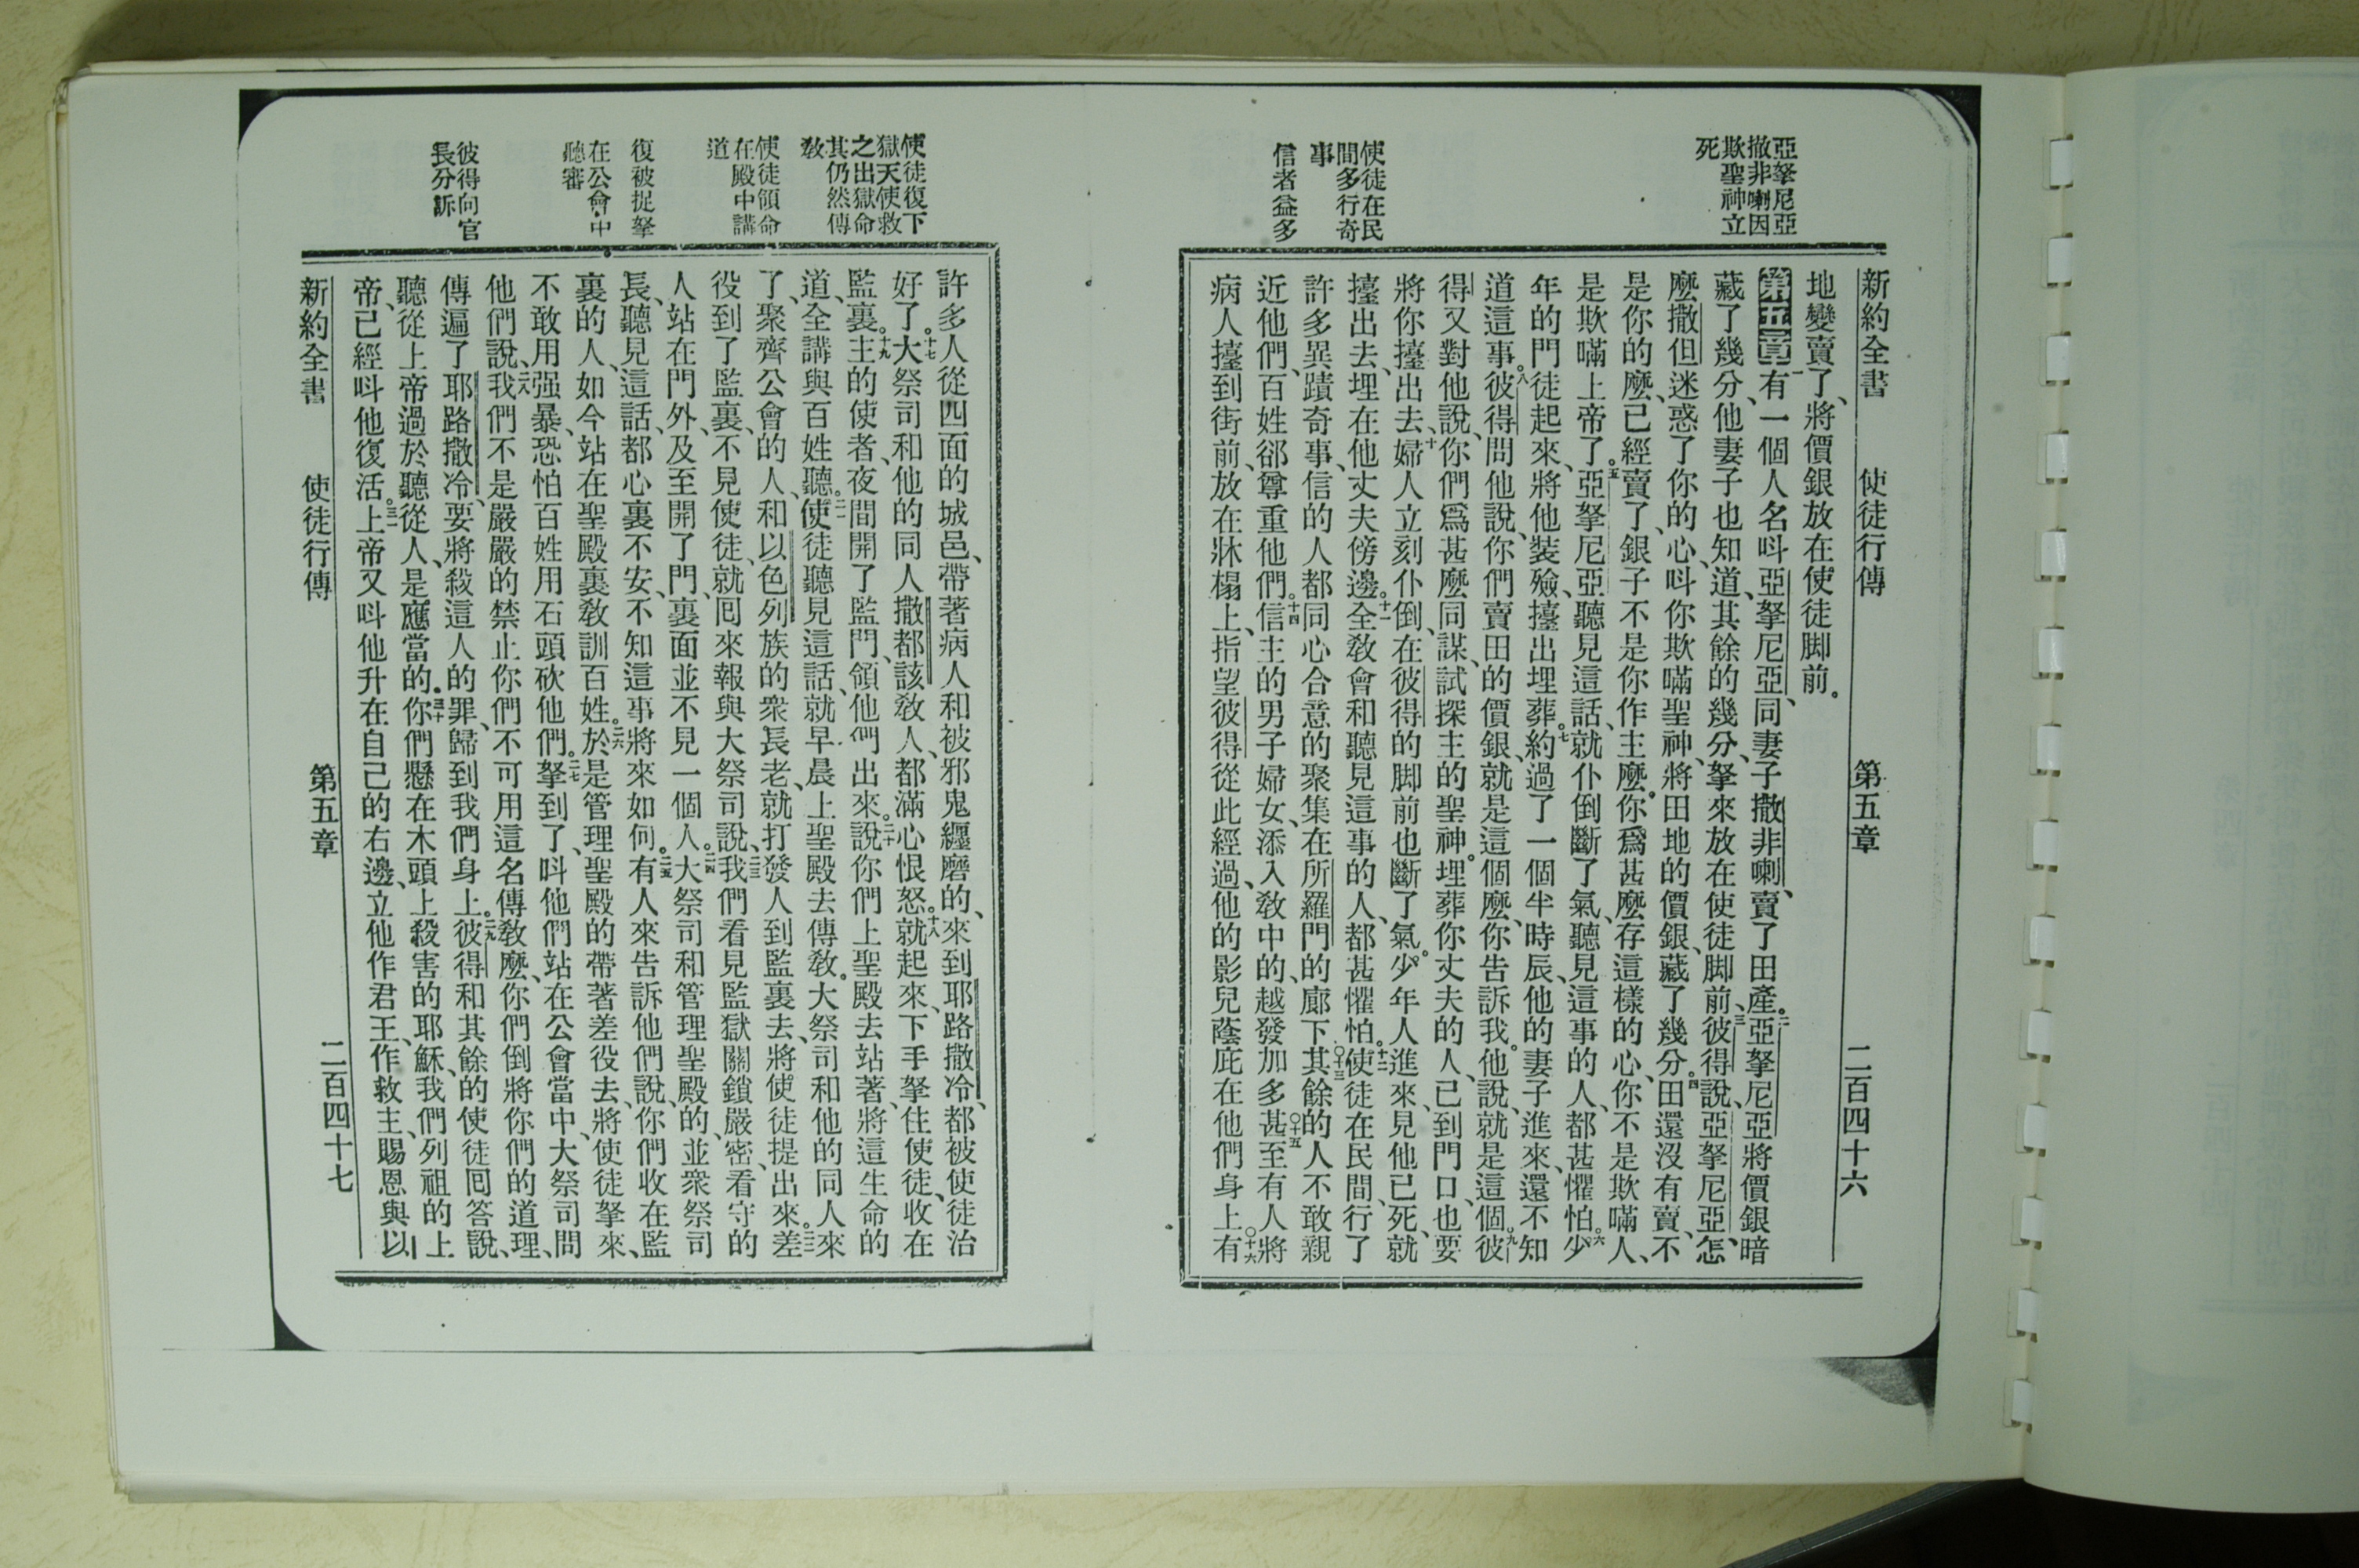 新約全書　使徒行傳　第五章　二百四十六
亞拏尼亞
撒非喇因
欺聖神立
死
使徒在民
間多行奇
事
信者益多
地變賣了、將價銀放在使徒脚前。
第五章一有一個人名呌亞拏尼亞、同妻子撒非喇、賣了田產。二亞拏尼亞將價銀暗
藏了幾分、他妻子也知道、其餘的幾分、拏來放在使徒脚前、三彼得說、亞拏尼亞、怎
麼撒但迷惑了你的心、呌你欺瞞聖神、將田地的價銀、藏了幾分。四田還沒有賣、不
是你的麼、已經賣了、銀子不是你作主麼。你爲甚麼存這樣的心、你不是欺瞞人、
是欺瞞上帝了。五亞拏尼亞聽見這話、就仆倒斷了氣、聽見這事的人、都甚懼怕。六少
年的門徒起來、將他裝殮、擡出埋葬。七約過了一個半時辰、他的妻子進來、還不知
道這事。八彼得問他說、你們賣田的價銀、就是這個麼、你告訴我。他說、就是這個。九彼
得又對他說、你們爲甚麼同謀、試探主的聖神。埋葬你丈夫的人、已到門口、也要
將你擡出去、十婦人立刻仆倒、在彼得的脚前也斷了氣。少年人進來、見他已死、就
擡出去、埋在他丈夫傍邊。十一全敎會和聽見這事的人、都甚懼怕。十二使徒在民間、行了
許多異蹟奇事、信的人都同心合意的聚集在所羅門的廊下〇十三其餘的人不敢親
近他們、百姓郤尊重他們。十四信主的男子婦女、添入敎中的、越發加多〇十五甚至有人將
病人擡到街前、放在牀榻上、指望彼得從此經過、他的影兒蔭庇在他們身上〇十六有
使徒復下
獄天使救
之出獄命
其仍然傳
敎
使徒領命
在殿中講
道
復被捉拏
在公會中
聽審
彼得向官
長分訴
許多人從四面的城邑、帶著病人和被邪鬼纏磨的、來到耶路撒冷、都被使徒治
好了。十七大祭司和他的同人撒都該敎人、都滿心恨怒。十八就起來、下手拏住使徒、收在
監裏。十九主的使者、夜間開了監門、領他們出來。二十說你們上聖殿去站著、將這生命的
道、全講與百姓聽。二一使徒聽見這話、就早晨上聖殿去傳敎。大祭司和他的同人來
了、聚齊公會的人、和以色列族的衆長老、就打發人到監裏去、將使徒提出來。二二差
役到了監裏、不見使徒、就囘來報與大祭司說、二三我們看見監獄關鎖嚴密、看守的
人站在門外、及至開了門、裏面並不見一個人。二四大祭司和管理聖殿的、並衆祭司
長、聽見這話、都心裏不安、不知這事將來如何。二五有人來告訴他們說、你們收在監
裏的人、如今站在聖殿裏敎訓百姓。二六於是管理聖殿的帶著差役去、將使徒拏來、
不敢用强暴、恐怕百姓用石頭砍他們。二七拏到了、呌他們站在公會當中、大祭司問
他們說、二八我們不是嚴嚴的禁止你們不可用這名傳敎麼、你們倒將你們的道理、
傳遍了耶路撒冷、要將殺這人的罪、歸到我們身上。二九彼得和其餘的使徒囘答說、
聽從上帝過於聽從人、是應當的。三十你們懸在木頭上殺害的耶穌、我們列祖的上
帝、已經呌他復活。三一上帝又呌他升在自己的右邊、立他作君王、作救主、賜恩與以
新約全書　使徒行傳　第五章　二百四十七